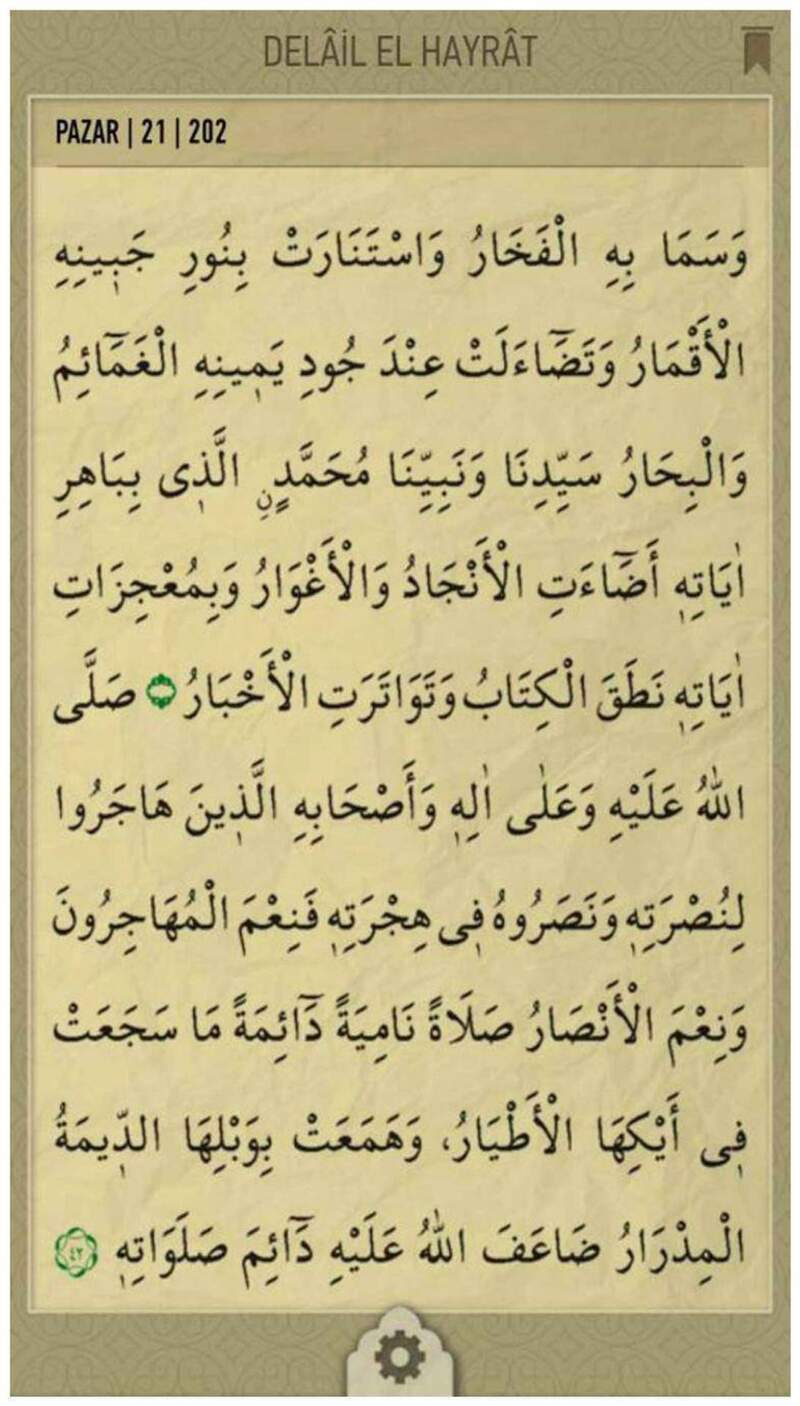 DELÂİL EL HAYRÂT
PAZAR | 21 | 202
وَسَمَا بِهِ الْفَخَارُ وَاسْتَنَارَتْ بِنُورِ جَبٖينِهِ
الْأَقْمَارُ وَتَضَٓاءَلَتْ عِنْدَ جُودِ يَمٖينِهِ الْغَمَٓائِمُ
وَالْبِحَارُ سَيِّدِنَا وَنَبِيِّنَا مُحَمَّدٍنِ الَّذٖى بِبَاهِرِ
اٰيَاتِهٖ أَضَٓاءَتِ الْأَنْجَادُ وَالْأَغْوَارُ وَبِمُعْجِزَاتِ
اٰيَاتِهٖ نَطَقَ الْكِتَابُ وَتَوَاتَرَتِ الْأَخْبَارُ صَلَّى
اللّٰهُ عَلَيْهِ وَعَلٰى اٰلِهٖ وَأَصْحَابِهِ الَّذٖينَ هَاجَرُوا
لِنُصْرَتِهٖ وَنَصَرُوهُ فٖى هِجْرَتِهٖ فَنِعْمَ الْمُهَاجِرُونَ
وَنِعْمَ الْأَنْصَارُ صَلَاةً نَامِيَةً دَٓائِمَةً مَا سَجَعَتْ
فٖى أَيْكِهَا الْأَطْيَارُ، وَهَمَعَتْ بِوَبْلِهَا الدّٖيمَةُ
الْمِدْرَارُ ضَاعَفَ اللّٰهُ عَلَيْهِ دَٓائِمَ صَلَوَاتِهٖ ٤٢